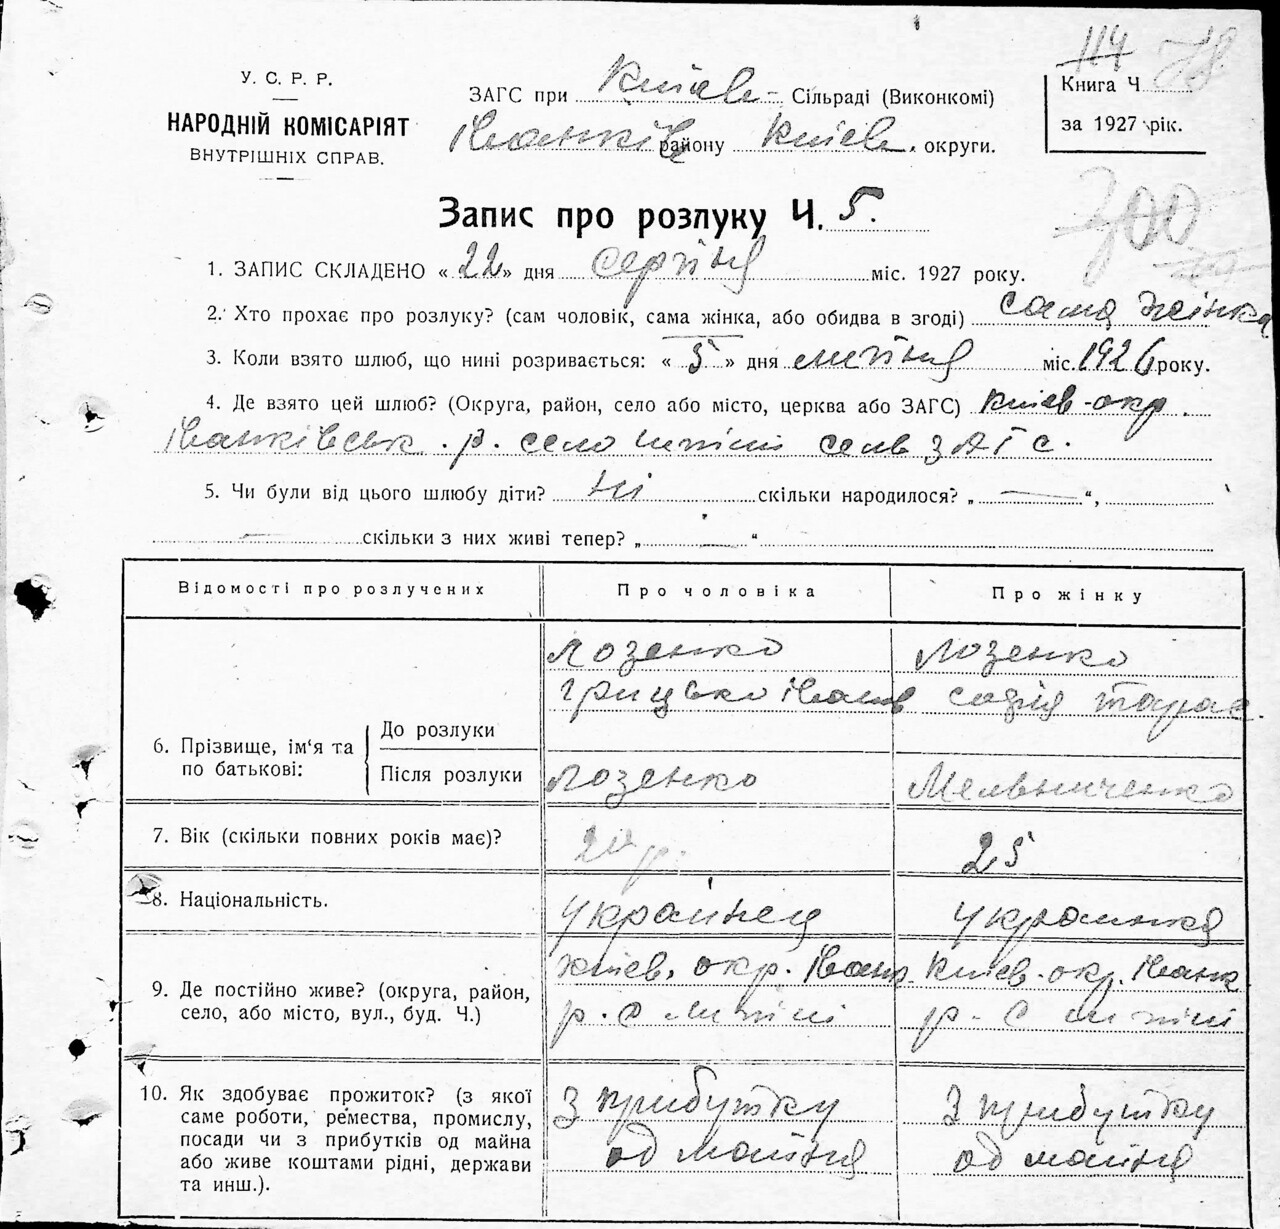 114 78
У. С. Р. Р.
НАРОДНІЙ КОМІСАРІЯТ
ВНУТРІШНІХ СПРАВ.
ЗАГС при Київв- Сільраді (Виконкомі)
Іванків району Київ. округи.
Книга Ч
за 1927 рік.
300
Запис про розлуку Ч. 5.
1. ЗАПИС СКЛАДЕНО «22» дня серпня міс. 1927 року.
2. Хто прохає про розлуку? (сам чоловік, сама жінка, або обидва в згоді) сама жінка
3. Коли взято шлюб, що нині розривається: «5» дня липня міс. 1926 року.
4. Де взято цей шлюб? (Округа, район, село або місто, церква або ЗАГС) Київ-окр.
Іванківськ. р. село сельЗАГС.
5. Чи були від цього шлюбу діти? ні скільки народилося? „ — “,
— скільки з них живі тепер? „ — “
Відомості про розлучених
Про чоловіка
Про жінку
6. Прізвище, ім‘я та по батькові:
До розлуки
Лозенко
Грицько Іванов
Лозенко
Софія Тарас.
Після розлуки
Лозенко
Мельниченко
7. Вік (скільки повних років має)?
р.
25
8. Національність.
Українец
Украинка
9. Де постійно живе? (округа, район,
село, або місто, вул., буд. Ч.)
Київ. окр. Іванк.
р. с
Київ-окр. Іванк
р. с
10. Як здобуває прожиток? (з якої
саме роботи, ремества, промислу,
посади чи з прибутків од майна
або живе коштами рідні, держави
та инш.).
З прибутку
од майна
З прибутку
од майна